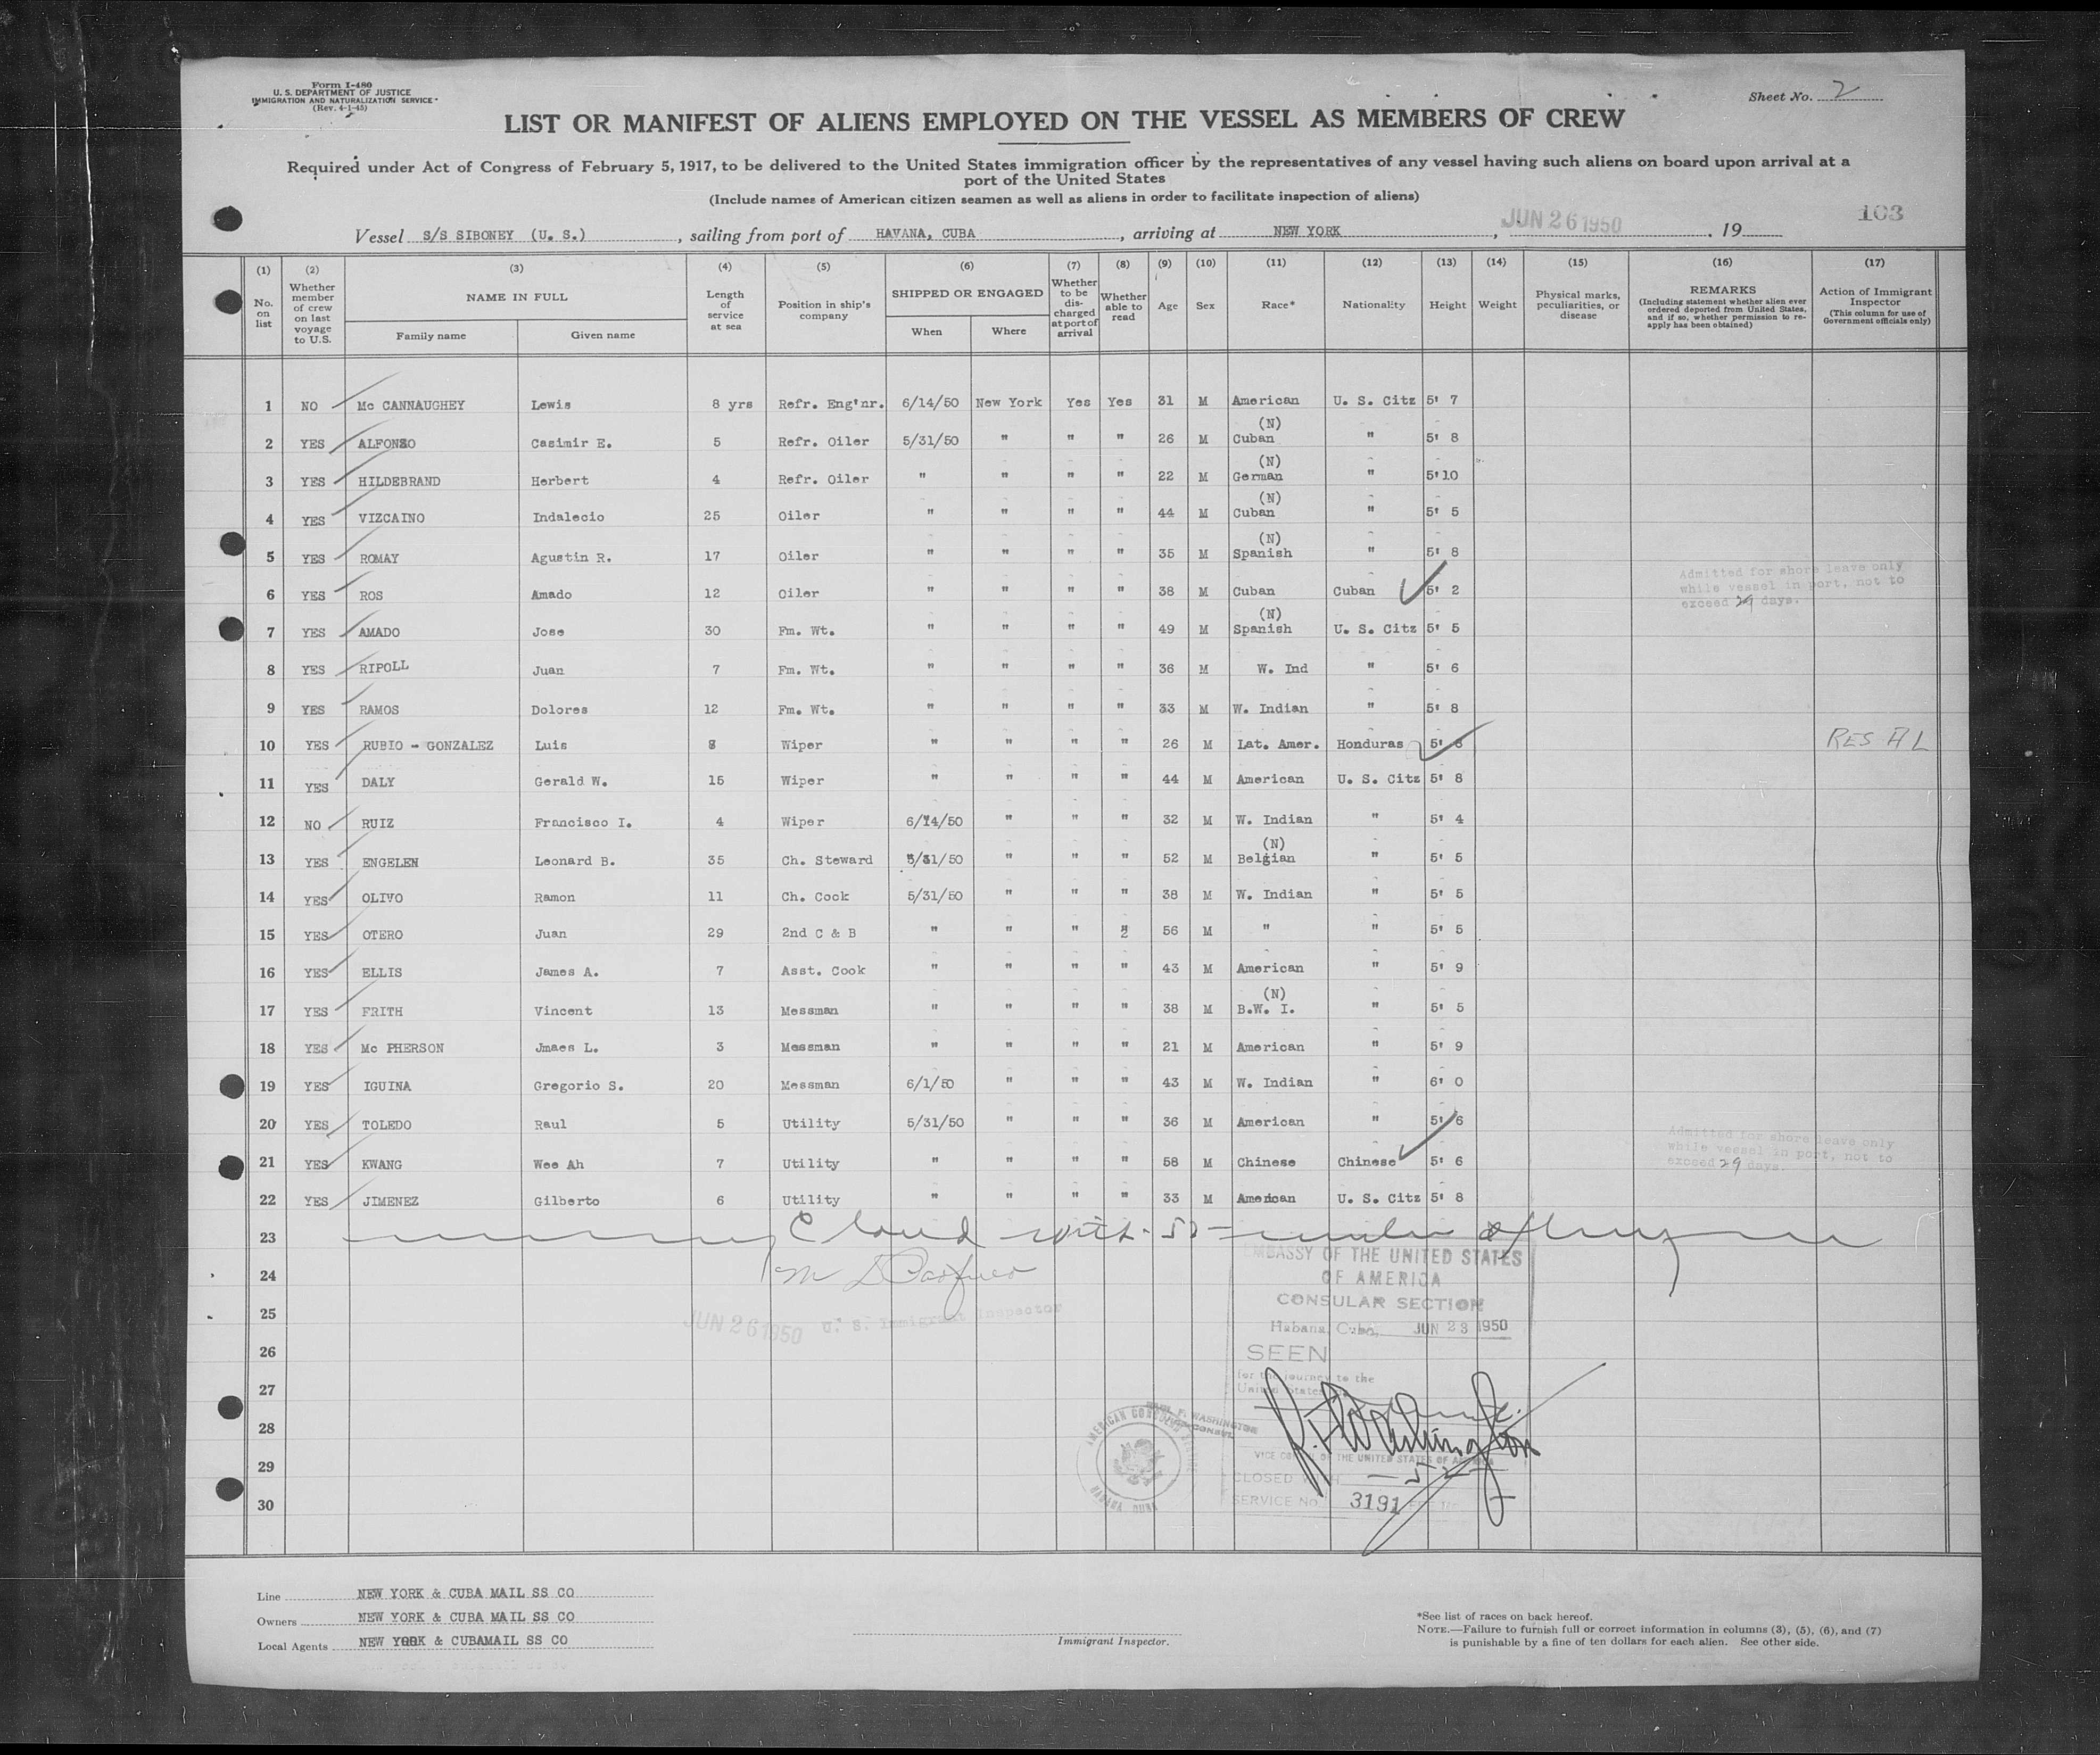 Form I-480
U. S. DEPARTMENT OF JUSTICE
IMMIGRATION AND NATURALIZATION SERVICE
(Rev. 4-1-45)
Sheet No. 2
LIST OR MANIFEST OF ALIENS EMPLOYED ON THE VESSEL AS MEMBERS OF CREW
Required under Act of Congress of February 5, 1917, to be delivered to the United States immigration officer by the representatives of any vessel having such aliens on board upon arrival at a
port of the United States
(Include names of American citizen seamen as well as aliens in order to facilitate inspection of aliens)
103
Vessel S/S SIBONEY (U. S.), sailing from port of HAVANA, CUBA, arriving at NEW YORK, JUN 26 1950, 19
(1) (2) (3) (4) (5) (6) (7) (8) (9) (10) (11) (12) (13) (14) (15) (16) (17)
No. on list
Whether member of crew on last voyage to U.S.
NAME IN FULL
Family name
Given name
Length of service at sea
Position in ship's company
SHIPPED OR ENGAGED
When
Where
Whether to be discharged at port of arrival
Whether able to read
Age
Sex
Race*
Nationality
Height
Weight
Physical marks, peculiarities, or disease
REMARKS
(Including statement whether alien ever ordered deported from United States, and if so, whether permission to re-apply has been obtained)
Action of Immigrant Inspector
(This column for use of Government officials only)
1 NO Mc CANNAUGHEY Lewis 8 yrs Refr. Eng'nr. 6/14/50 New York Yes Yes 31 M American U. S. Citz 5' 7
2 YES ALFONSO Casimir E. 5 Refr. Oiler 5/31/50 " " " 26 M (N) Cuban " 5' 8
3 YES HILDEBRAND Herbert 4 Refr. Oiler " " " " 22 M (N) German " 5'10
4 YES VIZCAINO Indalecio 25 Oiler " " " " 44 M (N) Cuban " 5' 5
5 YES ROMAY Agustin R. 17 Oiler " " " " 35 M (N) Spanish " 5' 8
6 YES ROS Amado 12 Oiler " " " " 38 M Cuban Cuban 5' 2 Admitted for shore leave only while vessel in port, not to exceed 29 days.
7 YES AMADO Jose 30 Fm. Wt. " " " " 49 M (N) Spanish U. S. Citz 5' 5
8 YES RIPOLL Juan 7 Fm. Wt. " " " " 36 M W. Ind " 5' 6
9 YES RAMOS Dolores 12 Fm. Wt. " " " " 33 M W. Indian " 5' 8
10 YES RUBIO - GONZALEZ Luis 8 Wiper " " " " 26 M Lat. Amer. Honduras 5' RES AL
11 YES DALY Gerald W. 15 Wiper " " " " 44 M American U. S. Citz 5' 8
12 NO RUIZ Francisco I. 4 Wiper 6/14/50 " " " 32 M W. Indian " 5' 4
13 YES ENGELEN Leonard B. 35 Ch. Steward 5/31/50 " " " 52 M (N) Belgian " 5' 5
14 YES OLIVO Ramon 11 Ch. Cook 5/31/50 " " " 38 M W. Indian " 5' 5
15 YES OTERO Juan 29 2nd C & B " " " " 56 M " " 5' 5
16 YES ELLIS James A. 7 Asst. Cook " " " " 43 M American " 5' 9
17 YES FRITH Vincent 13 Messman " " " " 38 M (N) B.W. I. " 5' 5
18 YES Mc PHERSON Jmaes L. 3 Messman " " " " 21 M American " 5' 9
19 YES IGUINA Gregorio S. 20 Messman 6/1/50 " " " 43 M W. Indian " 6' 0
20 YES TOLEDO Raul 5 Utility 5/31/50 " " " 36 M American " 5' 6
21 YES KWANG Wee Ah 7 Utility " " " " 58 M Chinese Chinese 5' 6 Admitted for shore leave only while vessel in port, not to exceed 29 days.
22 YES JIMENEZ Gilberto 6 Utility " " " " 33 M American U. S. Citz 5' 8
23 Closed with
24
25
26
27
28
29
30
JUN 26 1950 U. S. Immigrant Inspector
EMBASSY OF THE UNITED STATES
OF AMERICA
CONSULAR SECTION
Habana, Cuba, JUN 23 1950
SEEN
for the journey to the
United States
WASHINGTON
VICE CONSUL OF THE UNITED STATES OF AMERICA
CLOSED WITH
SERVICE NO. 3191
AMERICAN CONSULAR SERVICE
HABANA, CUBA
Line NEW YORK & CUBA MAIL SS CO
Owners NEW YORK & CUBA MAIL SS CO
Local Agents NEW YORK & CUBAMAIL SS CO
Immigrant Inspector.
*See list of races on back hereof.
NOTE.—Failure to furnish full or correct information in columns (3), (5), (6), and (7)
is punishable by a fine of ten dollars for each alien. See other side.